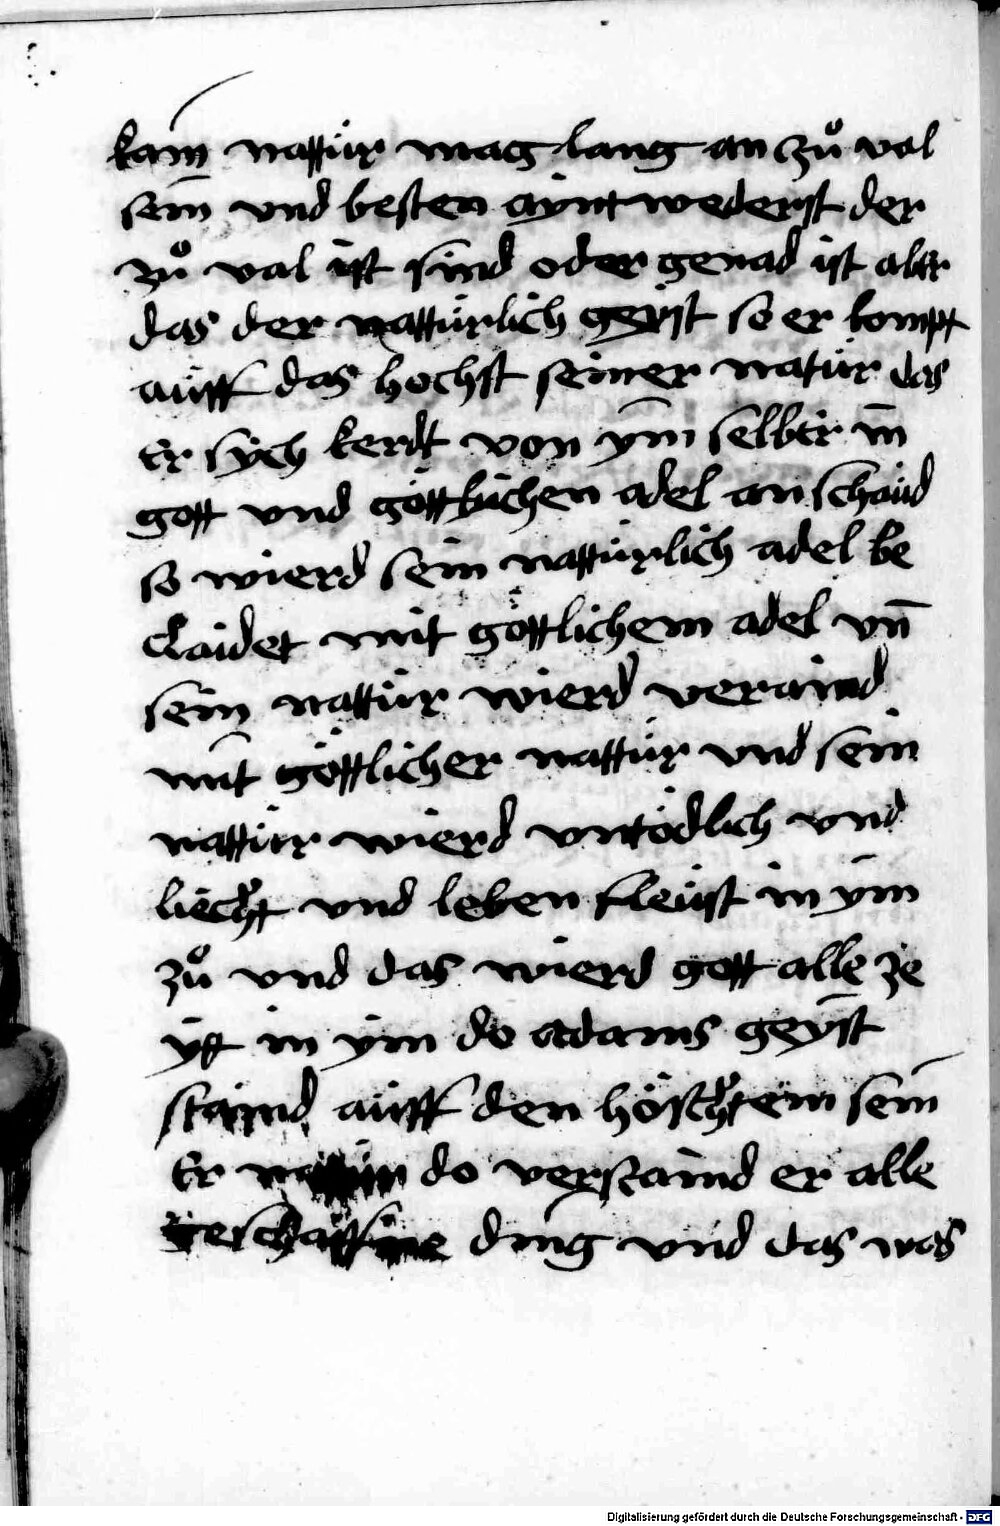 kain nattür mag lang an zuͦ val
sein vnd besten ayntwederst der
zuͦ val ist sünd oder genad ist aber
das der nattürlich geyst so er kompt
aüff das hochst seiner natür das
Er sych kerdt von ym selber in̄
gott vnd göttlichen adel an schaüd
so wierd sein nattürlich adel be
claidet mit göttlichem adel vn̄
sein nattür wierd veraind
mit göttlicher nattür vnd sein
nattür wierd vntödlich vnd
liecht vnd leben fleüst in ym
zuͦ vnd das wierd gott alle ze
yt in ym do adams geyst
staind aüff den höschtem sein
Er do verstaind er alle
geschaffne ding vnd das was
Digitalisierung gefördert durch die Deutsche Forschungsgemeinschaft - DFG